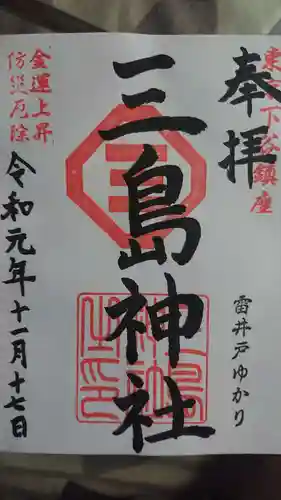 奉拝
東京下谷鎮座
雷井戸ゆかり
三島神社
金運上昇
防災厄除
令和元年十一月十七日